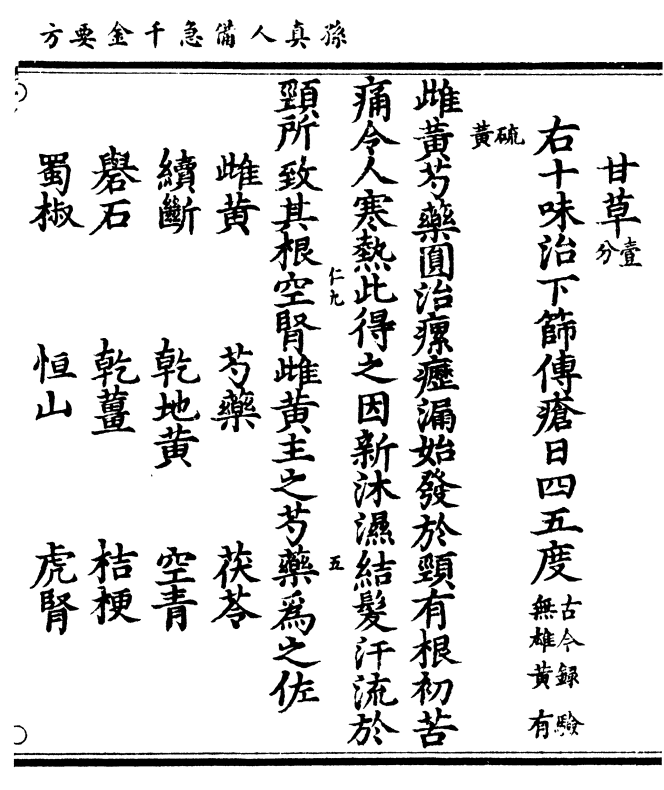 孫真人備急千金要方
甘草壹分
右十味治下篩傅瘡日四五度古今録驗無雄黃有
硫黃
雌黃芍藥圓治瘰癧漏始發於頸有根初苦
痛令人寒熱此得之因新沐濕結髮汗流於
仁九
頸所致其根空腎雌黃主之芍藥為之佐
五
雌黃 芍藥 茯苓
續斷 乾地黃 空青
礜石 乾薑 桔梗
蜀椒 恒山 虎腎